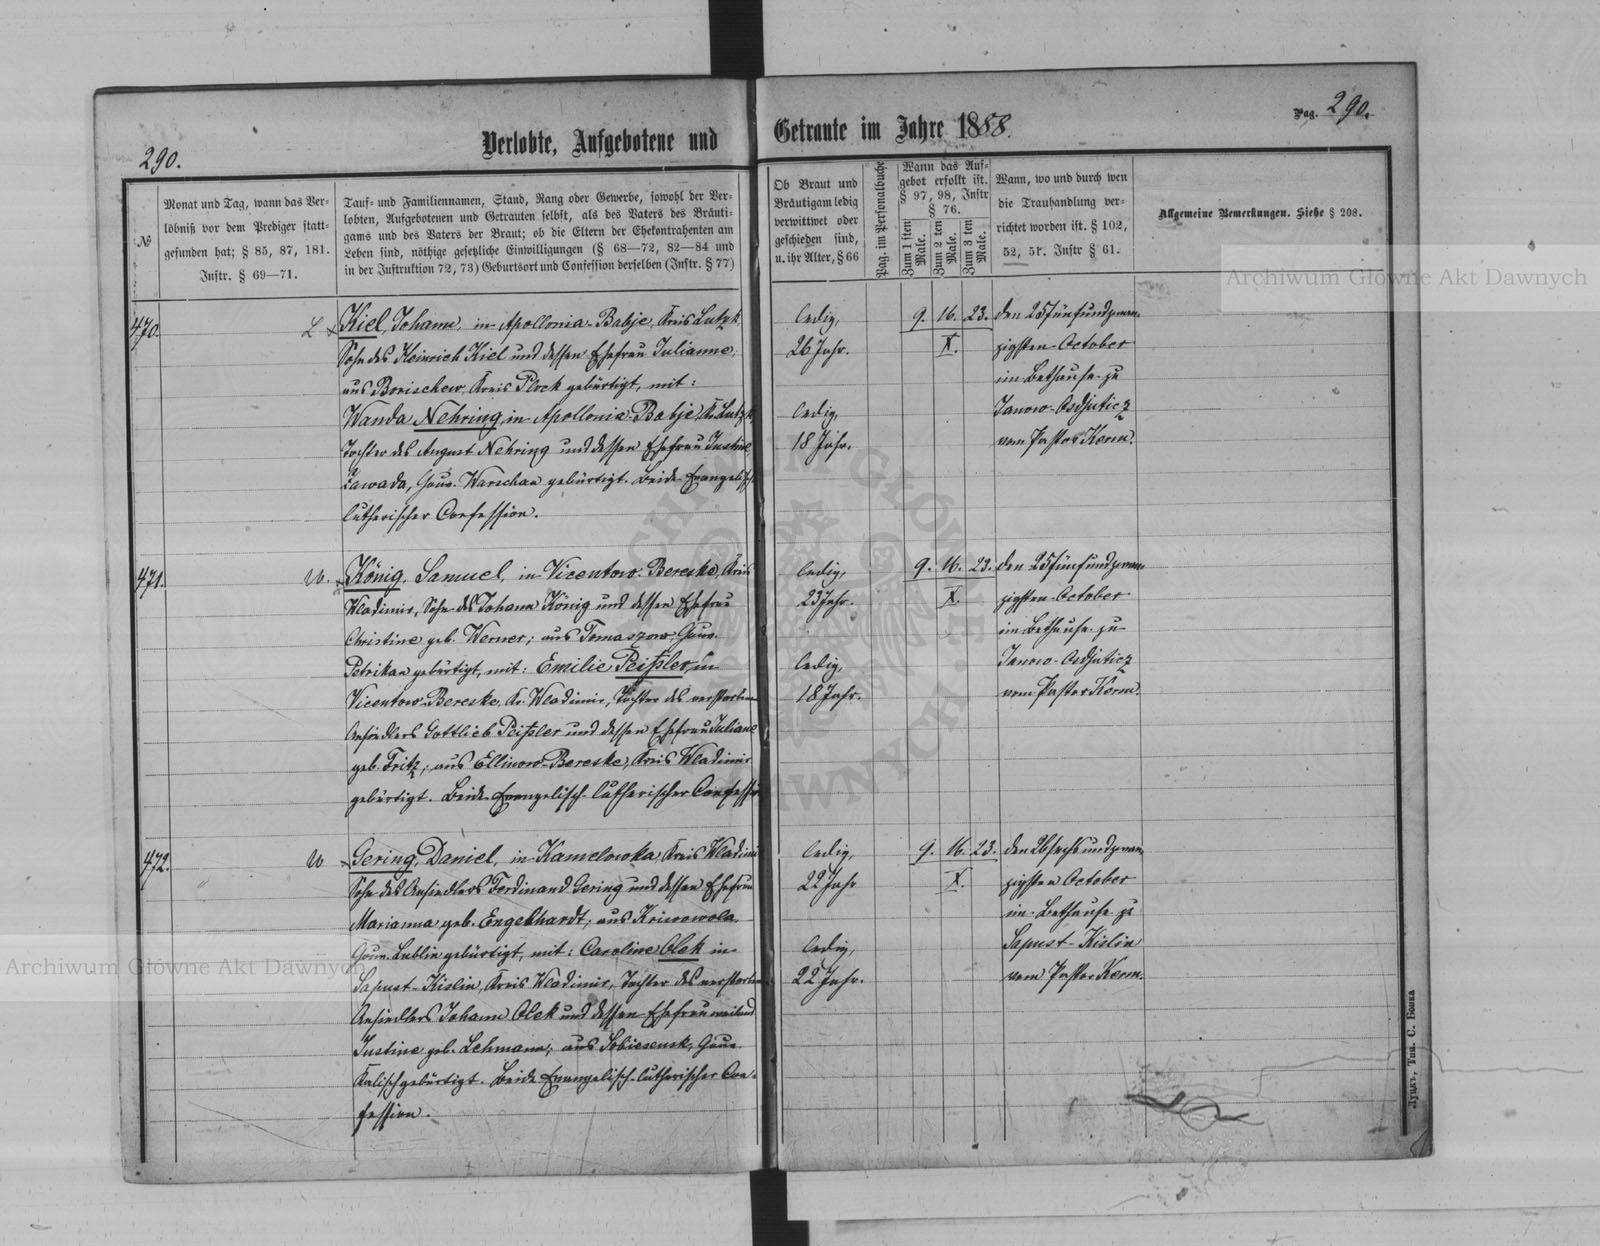 290.
Verlobte, Aufgebotene und Getraute im Jahre 1888.
Pag. 290.
№
Monat und Tag, wann das Ver-
löbniß vor dem Prediger statt-
gefunden hat; § 85, 87, 181.
Instr. § 69—71.
Tauf- und Familiennamen, Stand, Rang oder Gewerbe, sowohl der Ver-
lobten, Aufgebotenen und Getrauten selbst, als des Vaters des Bräuti-
gams und des Vaters der Braut; ob die Eltern der Ehekontrahenten am
Leben sind, nöthige gesetzliche Einwilligungen (§ 68—72, 82—84 und
in der Instruktion 72, 73) Geburtsort und Confession derselben (Instr. § 77)
Ob Braut und
Bräutigam ledig
verwittwet oder
geschieden sind,
u. ihr Alter, § 66
Pag. im Personalbuche
Wann das Auf-
gebot erfollt ist.
§ 97, 98, Instr
§ 76.
Zum 1 sten Male.
Zum 2 ten Male.
Zum 3 ten Male.
Wann, wo und durch wen
die Trauhandlung ver-
richtet worden ist. § 102,
52, 51. Instr § 61.
Allgemeine Bemerkungen. Siehe § 208.
470.
L x Kiel, Johann, in Apollonia-Babje, Kreis Lutzk,
Sohn des Heinrich Kiel und dessen Ehefrau Julianne,
aus Borischew, Kreis Plock gebürtigt, mit:
Wanda Nehring, in Apollonia-Babje, Kr. Lutzk,
Tochter des August Nehring und dessen Ehefrau Justine,
Zawada, Gouv. Warschau gebürtigt. Beide Evangelisch-
lutherischer Confession.
ledig,
26 Jahr.
ledig,
18 Jahr.
9. 16. 23.
X.
den 25 fünfundzwan-
zigsten October
im Bethause zu
Janow-Osdjuticz
vom Pastor Kerm.
471.
W. x König, Samuel, in Vicentow-Bereske, Kreis
Wladimir, Sohn des Johann König und dessen Ehefrau
Christine geb. Werner; aus Tomaszow, Gouv.
Petrikau gebürtigt, mit: Emilie Peißler, in
Vicentow-Bereske, Kr. Wladimir, Tochter des verstorbenen
Ansiedlers Gottlieb Peißler und dessen Ehefrau Juliane
geb. Fritz; aus Ellinow-Bereske, Kreis Wladimir
gebürtigt. Beide Evangelisch-lutherischer Confession
ledig,
23 Jahr.
ledig,
18 Jahr.
9. 16. 23.
X.
den 25 fünfundzwan-
zigsten October
im Bethause zu
Janow-Osdjuticz
vom Pastor Kerm.
472.
W x Gering, Daniel, in Kamelowka, Kreis Wladimir
Sohn des Ansiedlers Ferdinand Gering und dessen Ehefrau
Marianna geb. Engelhardt; aus Kriwowola
Gouv. Lublin gebürtigt, mit: Caroline Olek in
Sapust-Kislin, Kreis Wladimir, Tochter des verstorbenen
Ansiedlers Johann Olek und dessen Ehefrau weiland
Justine geb. Lehmann; aus Sobiesensk, Gouv.
Kalisch gebürtigt. Beide Evangelisch-lutherischer Con-
fession.
ledig,
22 Jahr
ledig,
22 Jahr.
9. 16. 23.
X.
den 26 sechsundzwan-
zigsten October
im Bethause zu
Sapust-Kislin
vom Pastor Kerm.
Луцкъ, Тип. С. Бошка
Archiwum Główne Akt Dawnych
Archiwum Główne Akt Dawnych